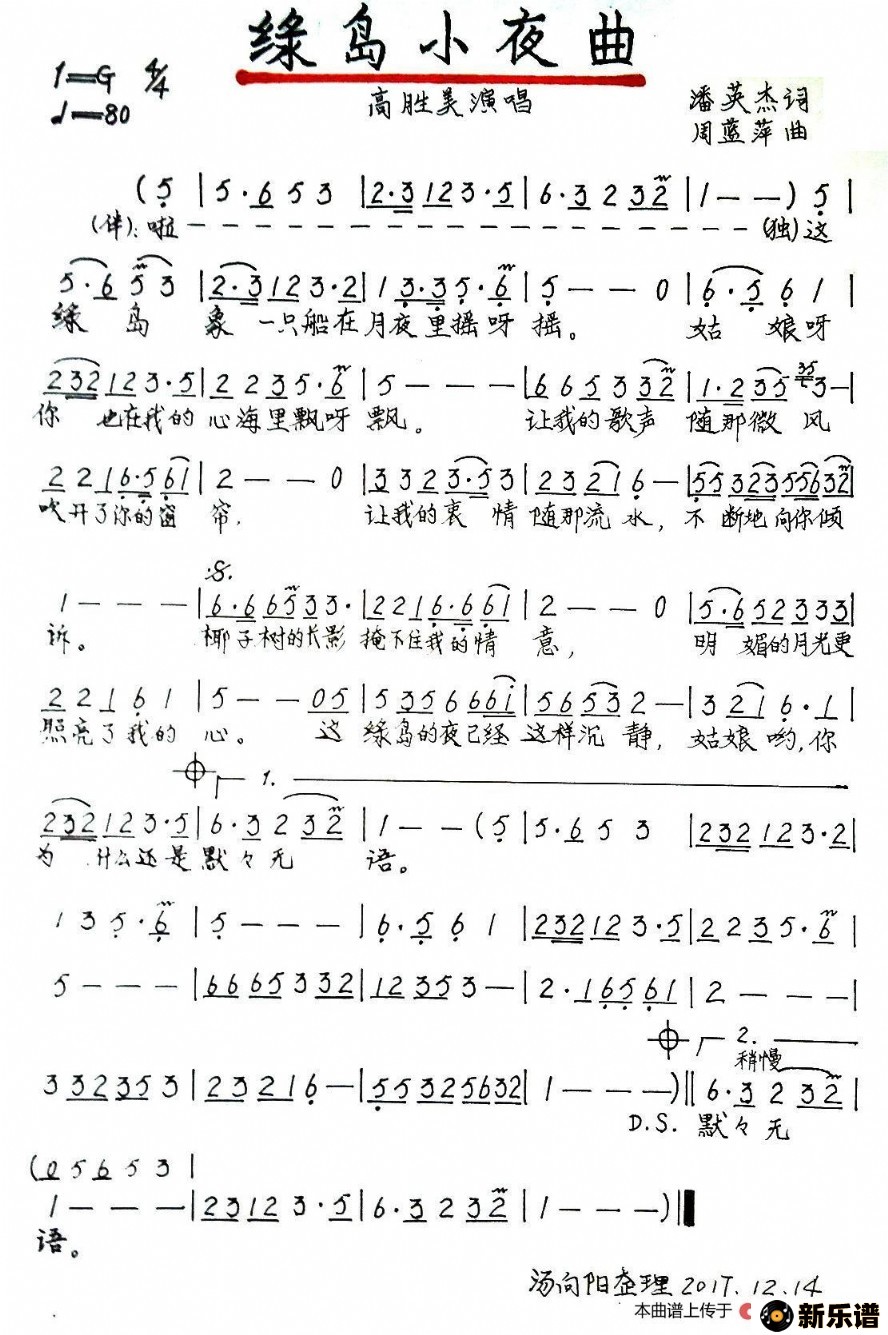 绿岛小夜曲
1=G 4/4
♩=80
高胜美演唱
潘英杰词
周蓝萍曲
(5 | 5·6 5 3 | 2·3 1 2 3·5 | 6·3 2 3 2 | 1 - - ) 5 |
(伴):啦 - - - - - - - - - - - - - - - - (独)这
5·6 5 3 | 2·3 1 2 3·2 | 1 3·3 5·6 | 5 - - 0 | 6·5 6 1 |
绿 岛 象 一只船在月夜里摇呀摇。 姑 娘呀
2 3 2 1 2 3·5 | 2 2 3 5·6 | 5 - - - | 6 6 5 3 3 2 | 1·2 3 5 3 - |
你 也在我的心海里飘呀飘。 让我的歌声 随那微风
2 2 1 6·5 6 1 | 2 - - 0 | 3 3 2 3·5 3 | 2 3 2 1 6 - | 5 5 3 2 3 5 5 6 3 2 |
吹开了你的窗 帘, 让我的衷 情随那流水, 不断地向你倾
1 - - - | 6·6 6 5 3 3· | 2 2 1 6·6 6 1 | 2 - - 0 | 5·6 5 2 3 3 3 3 |
诉。 椰子树的长影 掩不住我的情 意, 明 媚的月光更
2 2 1 6 1 | 5 - - 0 5 | 5 3 5 6 6 6 i | 5 6 5 3 2 - | 3 2 1 6·1 |
照亮了我的 心。 这 绿岛的夜已经 这样沉 静, 姑娘哟,你
1.
2 3 2 1 2 3·5 | 6·3 2 3 2 | 1 - - (5 | 5·6 5 3 | 2 3 2 1 2 3·2 |
为 什么还是默々无 语。
1 3 5·6 | 5 - - - | 6·5 6 1 | 2 3 2 1 2 3·5 | 2 2 3 5·6 |
5 - - - | 6 6 6 5 3 3 2 | 1 2 3 5 3 - | 2·1 6 5 6 1 | 2 - - - |
2.
稍慢
3 3 2 3 5 3 | 2 3 2 1 6 - | 5 5 3 2 5 6 3 2 | 1 - - - ) || 6·3 2 3 2 |
D.S. 默々无
(0 5 6 5 3 |
1 - - - | 2 3 1 2 3·5 | 6·3 2 3 2 | 1 - - - ) ||
语。
汤向阳整理2017.12.14
本曲谱上传于
新乐谱